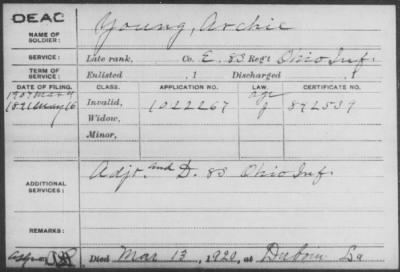 DEAC
NAME OF SOLDIER: Young, Archie
SERVICE: Late rank, Co. E. 83 Regt Ohio Inf.
TERM OF SERVICE: Enlisted , 1 Discharged , 1
DATE OF FILING. CLASS. APPLICATION NO. LAW. CERTIFICATE NO.
1891 May 16 Invalid, 1022267 872539
Widow,
Minor,
ADDITIONAL SERVICES: Adjt. and D. 83 Ohio Inf.
REMARKS:
Died Mar 13, 1920, at